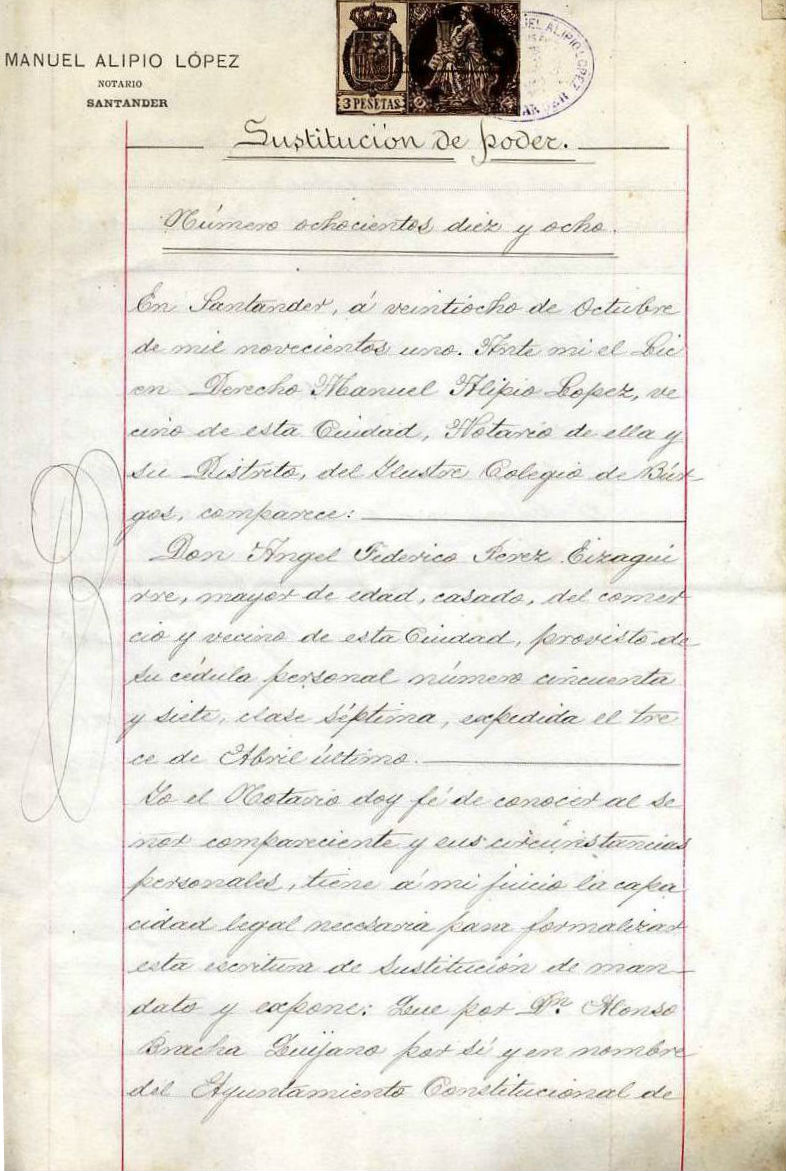 MANUEL ALIPIO LÓPEZ
NOTARIO
SANTANDER
3 PESETAS
Sustitución de poder.
Número ochocientos diez y ocho.
En Santander, á veintiocho de Octubre
de mil novecientos uno. Ante mi el Lic
en Derecho Manuel Alipio Lopez, ve
cino de esta Ciudad, Notario de ella y
su Distrito, del Ilustre Colegio de Búr-
gos, comparece:
Don Angel Federico Perez Eizagui
rre, mayor de edad, casado, del comer
cio y vecino de esta Ciudad, provisto de
su cédula personal número cincuenta
y siete, clase séptima, expedida el tre
ce de Abril último.
Yo el Notario doy fé de conocer al se
ñor compareciente y sus circunstancias
personales, tiene á mi juicio la capa
cidad legal necesaria para formalizar
esta escritura de sustitución de man-
dato y expone: Que por Dn. Alonso
Bracha Quijano por sí y en nombre
del Ayuntamiento Constitucional de